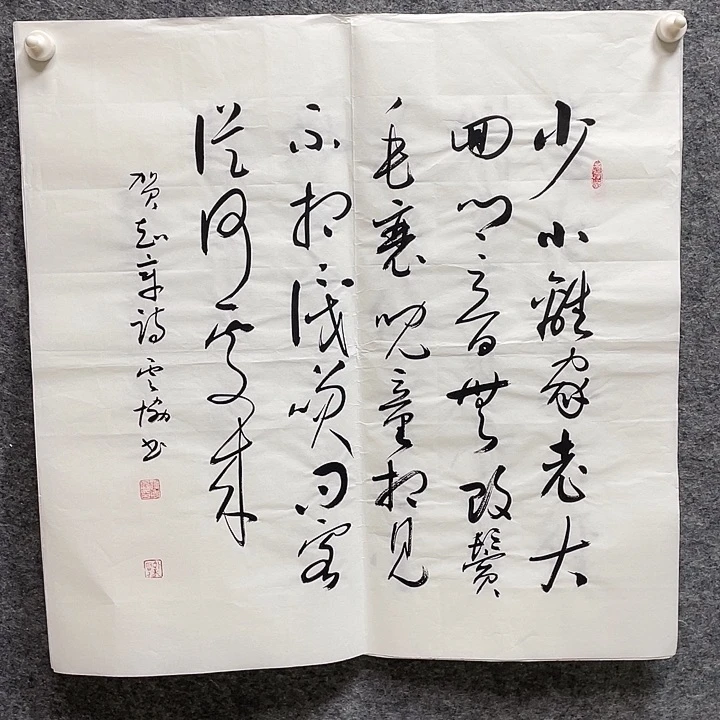 少小離家老大
回鄉音無改鬢
毛衰兒童相見
不相識咲問客
從何處來
賀知章詩 雲協書